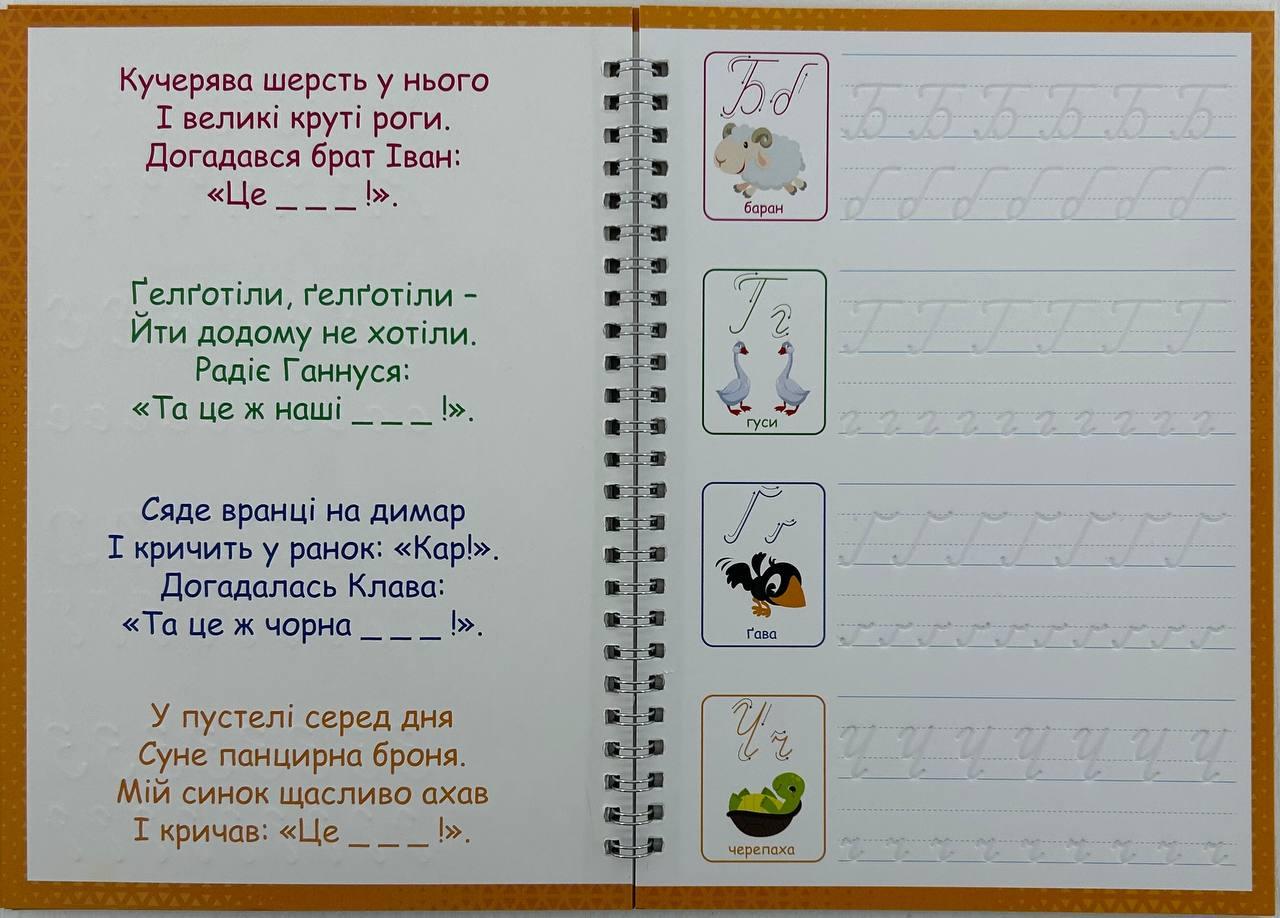 Кучерява шерсть у нього
І великі круті роги.
Догадався брат Іван:
«Це _ _ _ !».
Ґелґотіли, ґелґотіли –
Йти додому не хотіли.
Радіє Ганнуся:
«Та це ж наші _ _ _ !».
Сяде вранці на димар
І кричить у ранок: «Кар!».
Догадалась Клава:
«Та це ж чорна _ _ _ !».
У пустелі серед дня
Суне панцирна броня.
Мій синок щасливо ахав
І кричав: «Це _ _ _ !».
Б б
баран
Б Б Б Б Б Б
б б б б б б б
Г г
гуси
Г Г Г Г Г Г
г г г г г г г г г г
Ґ ґ
ґава
Ґ Ґ Ґ Ґ Ґ Ґ Ґ
ґ ґ ґ ґ ґ ґ ґ ґ ґ ґ
Ч ч
черепаха
Ч Ч Ч Ч Ч Ч Ч
ч ч ч ч ч ч ч ч ч